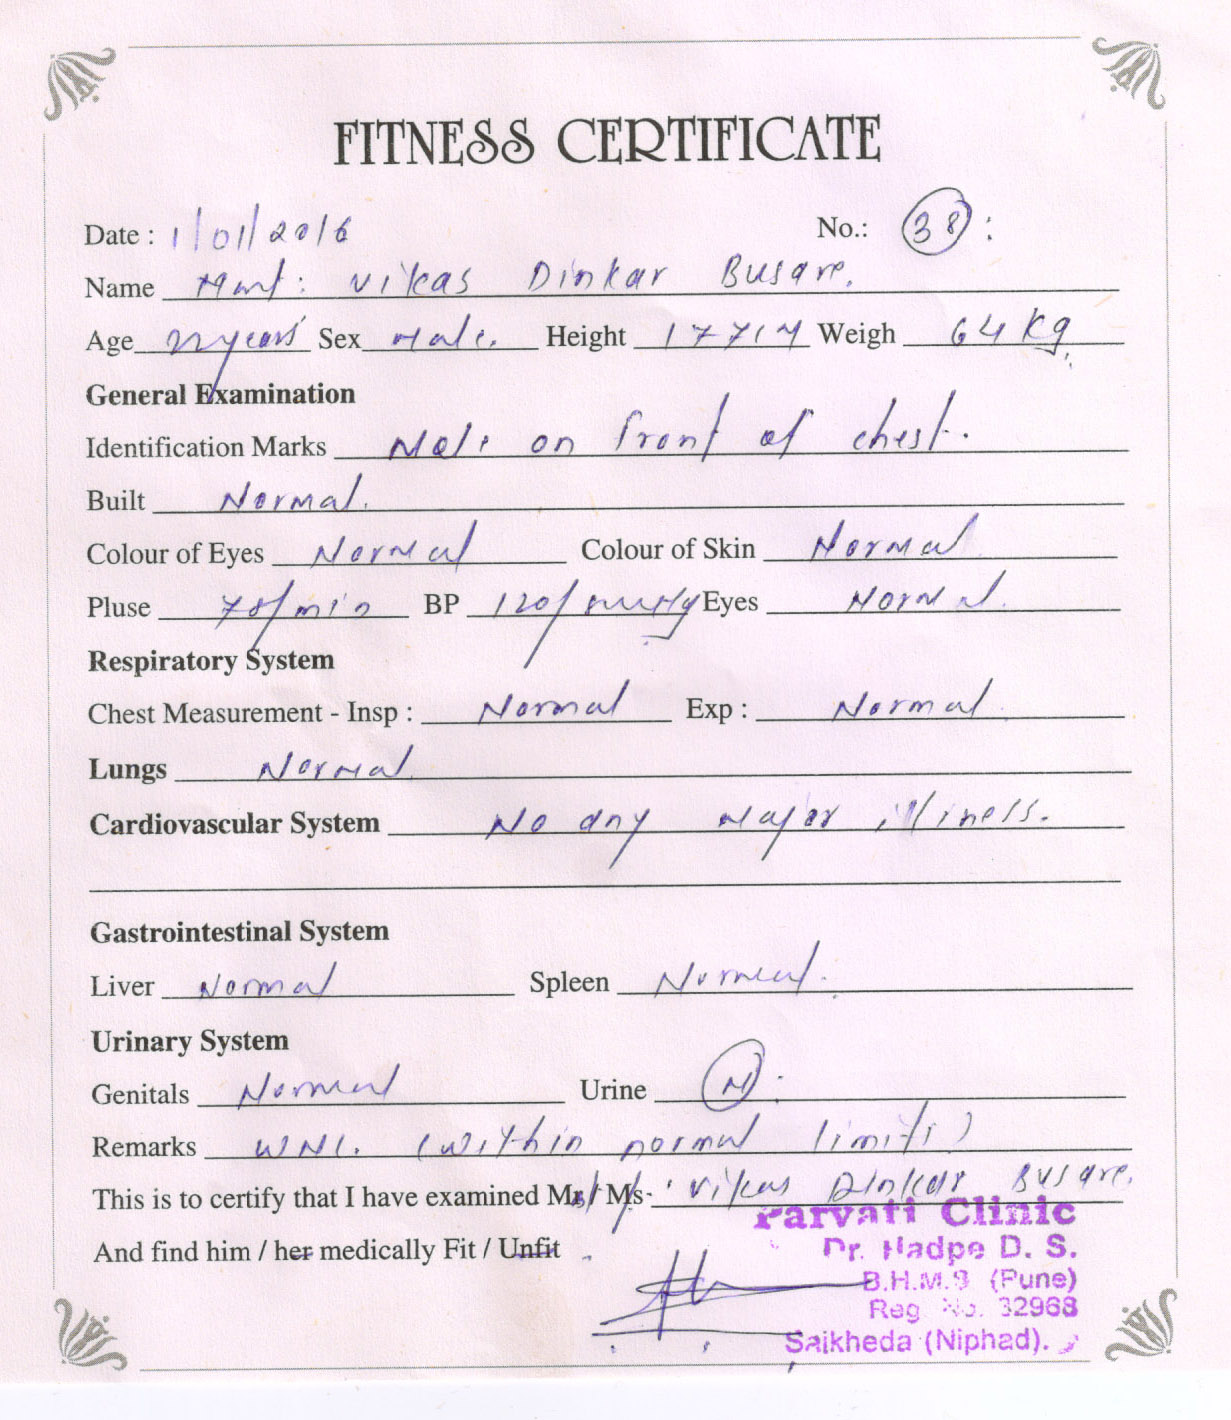 FITNESS CERTIFICATE
Date : 1/01/2016 No.: 38 :
Name Vikas Dinkar Busare.
Age 22 years Sex Male. Height 177 Weigh 64 Kg.
General Examination
Identification Marks Mole on front of chest.
Built Normal.
Colour of Eyes Normal Colour of Skin Normal
Pluse 78/min BP 120/ Eyes Normal.
Respiratory System
Chest Measurement - Insp : Normal Exp : Normal
Lungs Normal
Cardiovascular System No any major illiness.
Gastrointestinal System
Liver Normal Spleen Normal.
Urinary System
Genitals Normal Urine N :
Remarks WNL. (within normal limits)
This is to certify that I have examined Mr./ Ms. Vikas Dinkar Busare.
Parvati Clinic
And find him / her medically Fit / Unfit
Dr. Hadpe D. S.
B.H.M.S (Pune)
Reg No. 32968
Saikheda (Niphad).